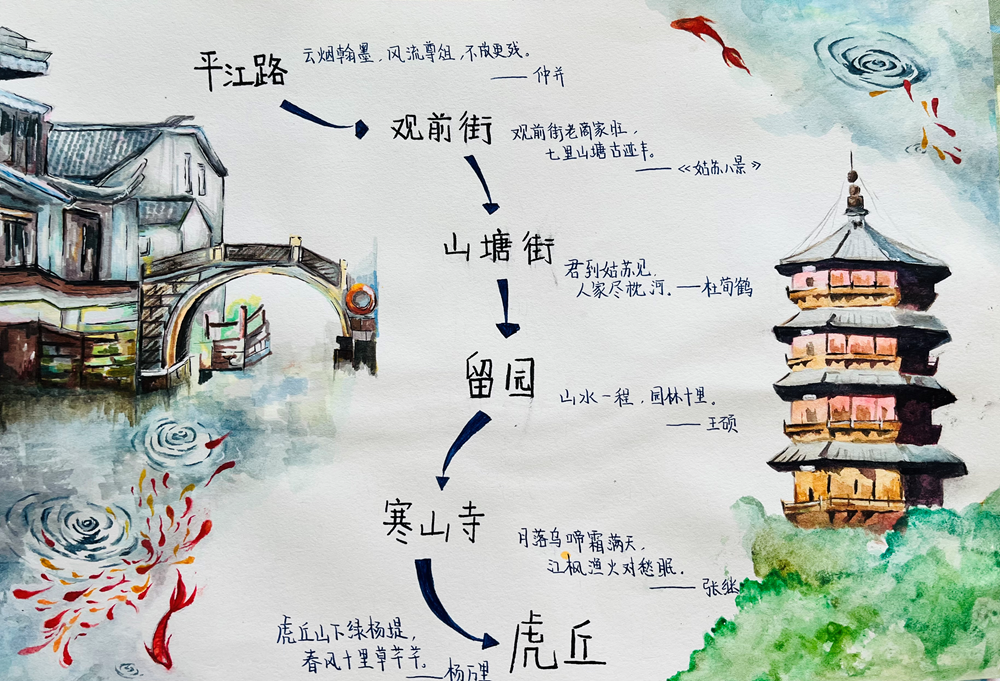 平江路
云烟翰墨,风流尊俎,不放更残。
——仲并
观前街
观前街老商家旺,
七里山塘古迹丰。
——《姑苏八景》
山塘街
君到姑苏见,
人家尽枕河。——杜荀鹤
留园
山水一程,园林十里。
——王硕
寒山寺
月落乌啼霜满天,
江枫渔火对愁眠。
——张继
虎丘山下绿杨堤,
春风十里草芊芊。
——杨万里
虎丘